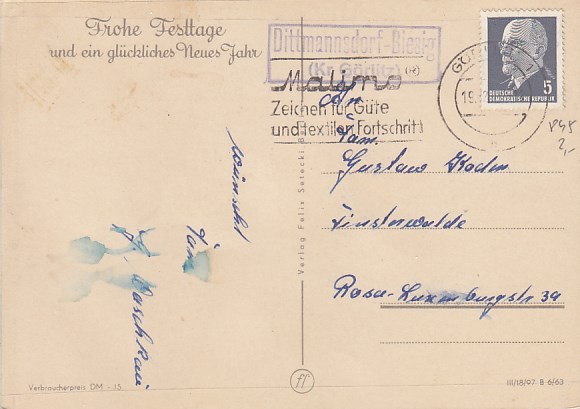 Frohe Festtage
und ein glückliches Neues Jahr
Dittmannsdorf-Biesig
(Kr. Görlitz)
Malimo (R)
Zeichen für Güte
und textilen Fortschritt
5
DEUTSCHE
DEMOKRATISCHE REPUBLIK
An
Fam.
Gustav
Finsterwalde
Rosa-Luxemburgstr 39
wünscht
Fam
Verlag Felix Setecki
Verbraucherpreis DM -.15
ff
III/18/97 B 6/63
2,-